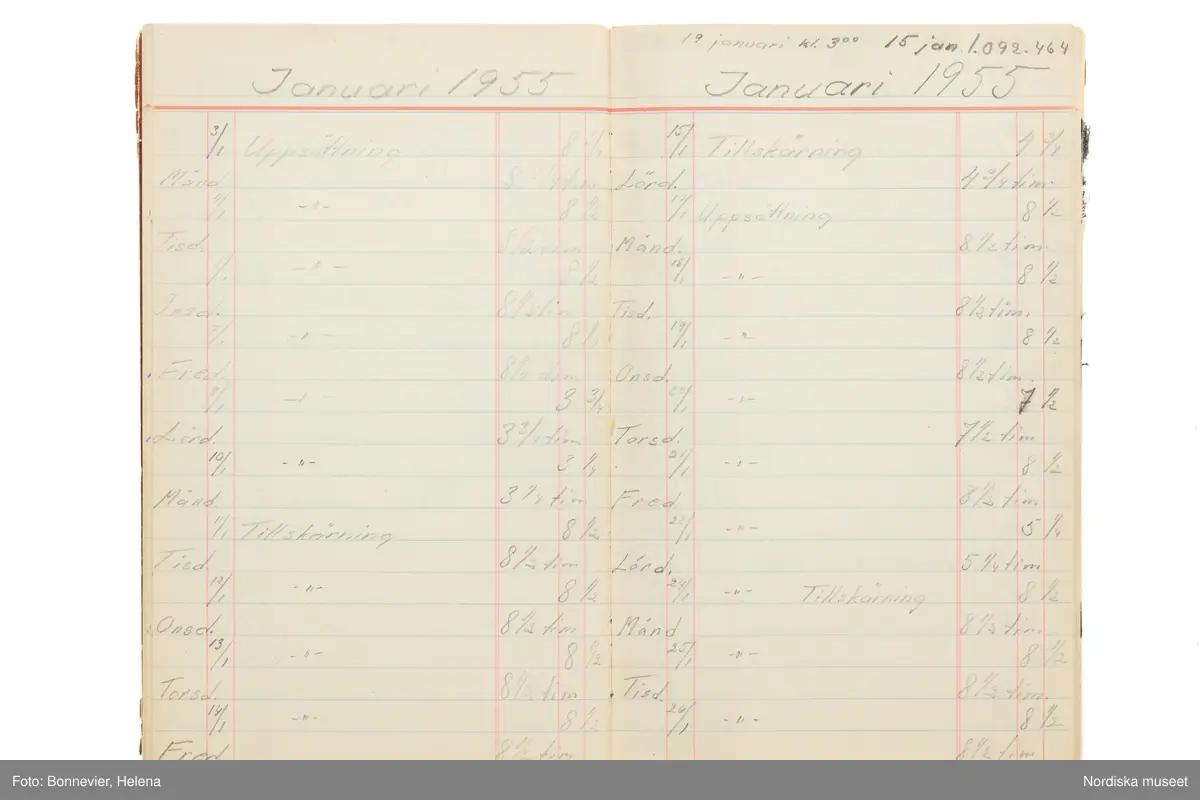 Januari 1955
3/1 Uppsättning
Månd.
4/1 -"- 8 1/2
Tisd. 8 1/2 tim
-"- 8 1/2
Onsd. 8 1/2 tim
7/1 -"- 8 1/2
Fred. 8 1/2 tim
8/1 -"- 3 3/4
Lörd. 3 3/4 tim
10/1 -"- 3 1/4
Månd 3 1/4 tim
11/1 Tillskärning 8 1/2
Tisd. 8 1/2 tim
12/1 -"- 8 1/2
Onsd. 8 1/2 tim
13/1 -"- 8 1/2
Torsd. 8 1/2 tim
14/1 -"- 8 1/2
Fred 8 1/2 tim
19 januari kl. 3⁰⁰ 15 jan 1.092.464
Januari 1955
15/1 Tillskärning 4 3/4
Lörd. 4 3/4 tim.
17/1 Uppsättning 8 1/2
Månd. 8 1/2 tim.
18/1 -"- 8 1/2
Tisd. 8 1/2 tim.
19/1 -"- 8 1/2
Onsd. 8 1/2 tim.
20/1 -"- 7 1/2
Torsd. 7 1/2 tim
21/1 -"- 8 1/2
Fred 8 1/2 tim
22/1 -"- 5 1/4
Lörd. 5 1/4 tim
24/1 -"- Tillskärning 8 1/2
Månd 8 1/2 tim
25/1 -"- 8 1/2
Tisd. 8 1/2 tim.
26/1 -"- 8 1/2
8 1/2 tim
Foto: Bonnevier, Helena
Nordiska museet